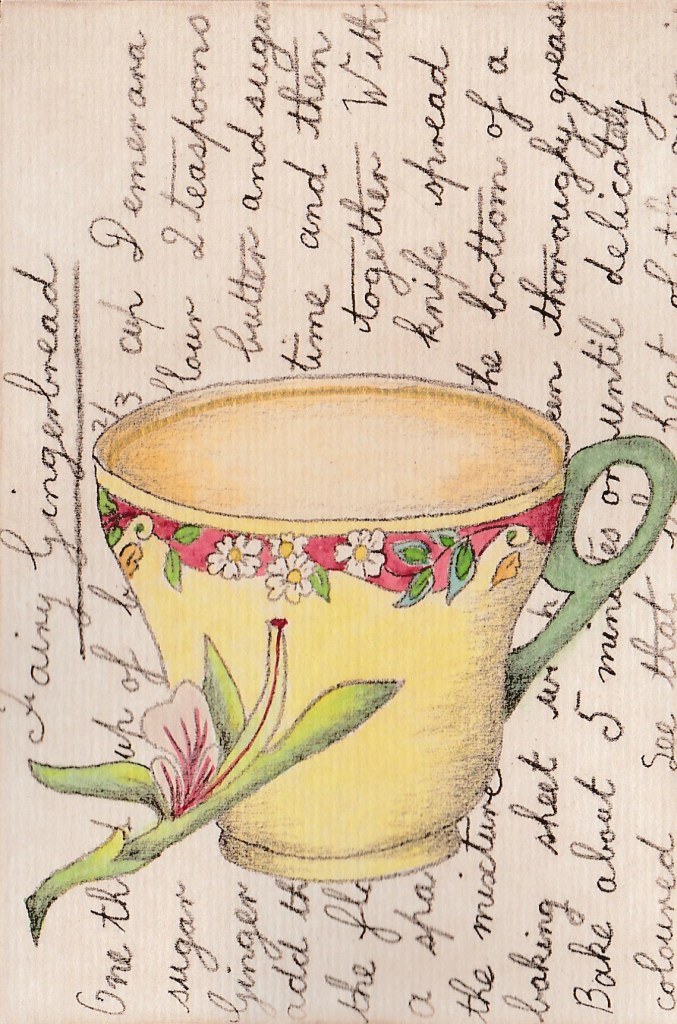 Fairy Gingerbread
One th up of b 2/3 cup Demerara
sugar flour 2 teaspoons
Ginger butter and sugar
add th time and then
the flo together With
a spa knife spread
the mixture the bottom of a
baking sheet wh een thoroughly grease
Bake about 5 minutes or until delicately
coloured See that heat of the